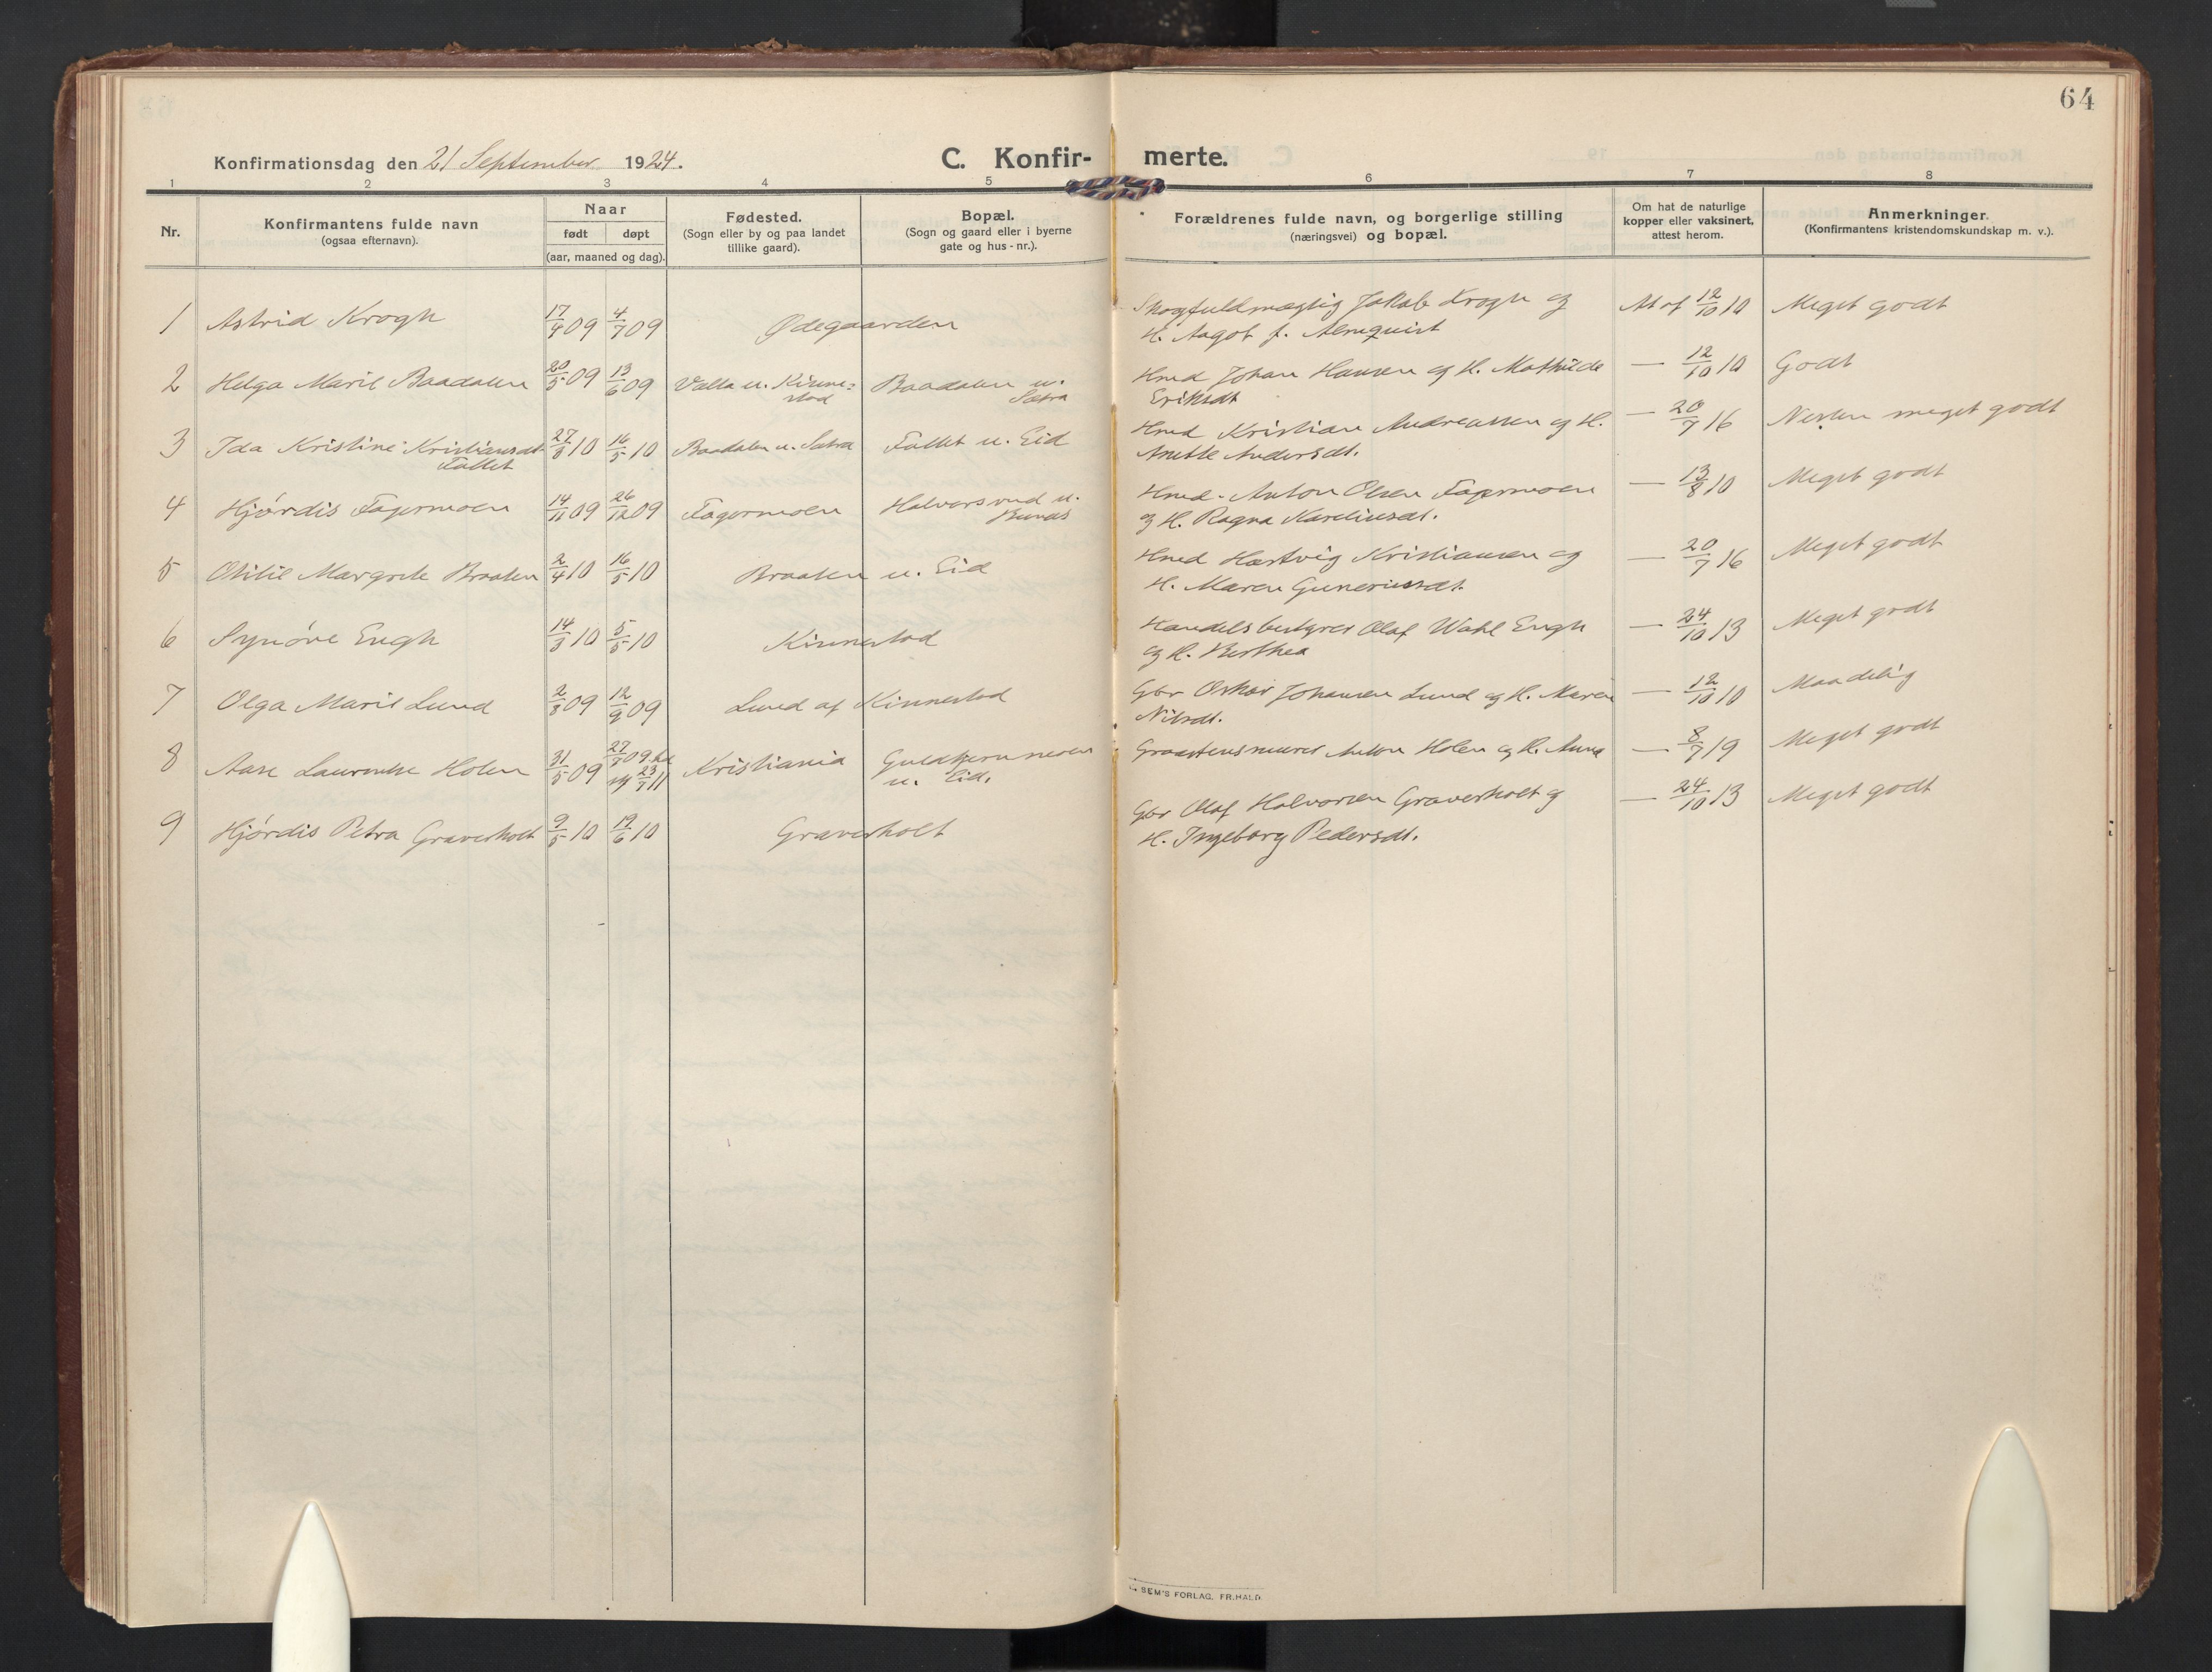 64
Konfirmationsdag den 21 September 1924.
C. Konfir- merte.
1 2 3 4 5 6 7 8
Nr.
Konfirmantens fulde navn
(ogsaa efternavn).
Naar
født døpt
(aar, maaned og dag).
Fødested.
(Sogn eller by og paa landet
tillike gaard).
Bopæl.
(Sogn og gaard eller i byerne
gate og hus-nr.).
Forældrenes fulde navn, og borgerlige stilling
(næringsvei) og bopæl.
Om hat de naturlige
kopper eller vaksinert,
attest herom.
Anmerkninger.
(Konfirmantens kristendomskundskap m. v.).
1 Astrid Krogh 17/4 09 4/7 09 Ødegaarden Skogfuldmægtig Jakob Krogh og At af 12/10 10 Meget godt
H. Aagot f. Almquist
2 Helga Marie Baadalen 20/5 09 13/6 09 Valla u. Kinne= Baadalen u. Hmd Johan Hansen og H. Mathilde — 12/10 10 Godt
stad Sætra Eriksdt
3 Ida Kristine Kristiansdt. 27/3 10 16/5 10 Baadalen u. Sætra Fallet u. Eid Hmd Kristian Andreassen og H. — 20/7 16 Nesten meget godt
Fallet Anette Andersdt.
4 Hjørdis Fagermoen 14/11 09 26/12 09 Fagermoen Halvorsrud u. Hmd. Anton Olsen Fagermoen — 13/8 10 Meget godt
og H. Ragna Kareliusdt.
5 Otilie Margrete Braaten 2/4 10 16/5 10 Braaten u. Eid Hmd Hartvig Kristiansen og — 20/7 16 Meget godt
H. Maren Guneriusdt.
6 Synøve Engh 14/3 10 5/5 10 Kinnestad Handelsbestyrer Olaf Wahl Engh — 24/10 13 Meget godt
og H. Berthea
7 Olga Marie Lund 2/8 09 12/9 09 Lund af Kinnestad Gbr Oskar Johansen Lund og H. Maren — 12/10 10 Maadelig
Nilsdt.
8 Aase Laurentse Holen 31/5 09 27/7 09 Kristiania Guldkjernmoen Graastensmurer Anton Holen og H. Anna — 8/7 19 Meget godt
23/7 11 u. Eid.
9 Hjørdis Petra Graverholt 9/5 10 19/6 10 Graverholt Gbr Olaf Halvorsen Graverholt og — 24/10 13 Meget godt
H. Ingeborg Pedersdt.
SEM'S FORLAG, FR.HALD